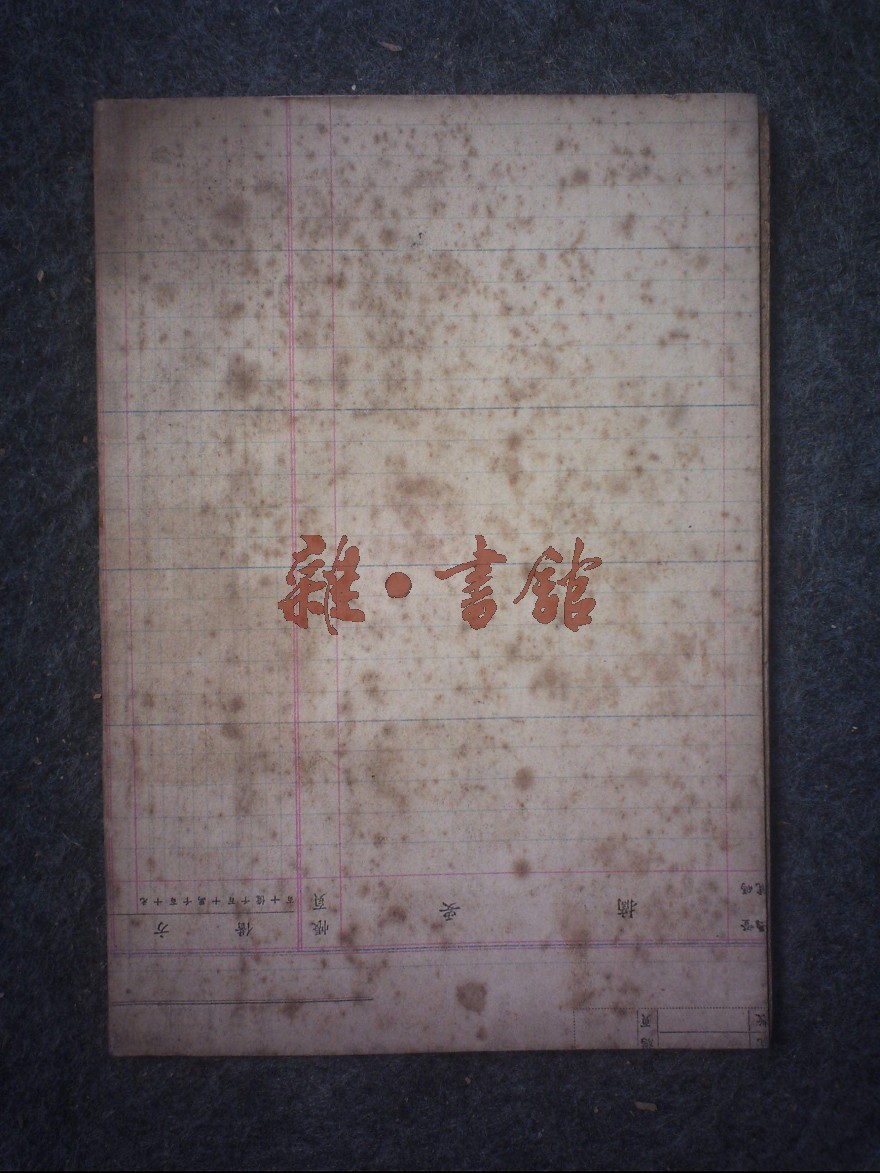 雜•書館
摘要
帳頁
借方
百十億千百十萬千百十元
號碼